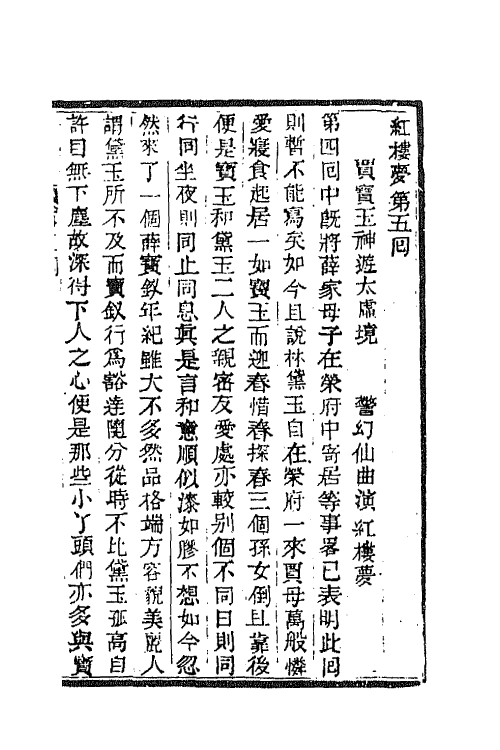 紅樓夢第五囘
賈寶玉神遊太虛境 警幻仙曲演紅樓夢
第四囘中旣將薛家母子在榮府中寄居等事畧已表明此囘
則暫不能寫矣如今且說林黛玉自在榮府一來賈母萬般憐
愛寢食起居一如寶玉而迎春惜春探春三個孫女倒且靠後
便是寶玉和黛玉二人之親密友愛處亦較别個不同日則同
行同坐夜則同止同息眞是言和意順似漆如膠不想如今忽
然來了一個薛寶釵年紀雖大不多然品格端方容貌美麗人
謂黛玉所不及而寶釵行爲豁達隨分從時不比黛玉孤高自
許目無下塵故深得下人之心便是那些小丫頭們亦多與寶